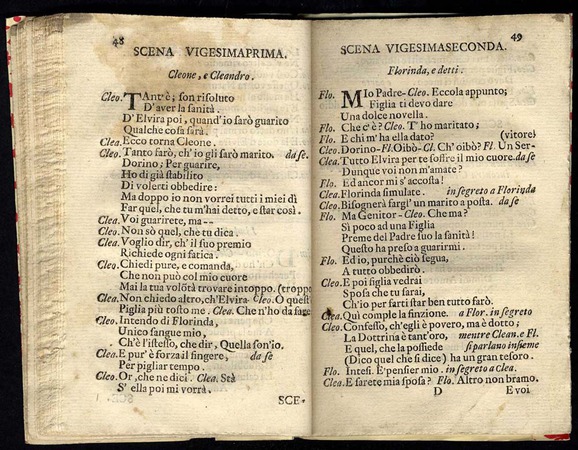 48
SCENA VIGESIMAPRIMA.
Cleone, e Cleandro.
Cleo. TAnt'è; son risoluto
D'aver la sanità.
D'Elvira poi, quand'io sarò guarito
Qualche cosa sarà.
Clea. Ecco torna Cleone.
Cleo. Tanto farò, ch'io gli sarò marito. da se.
Dorino; Per guarire,
Ho di già stabilito
Di volerti obbedire:
Ma doppo io non vorrei tutti i miei dì
Far quel, che tu m'hai detto, e star così.
Clea. Voi guarirete, ma--
Cleo. Non sò quel, che tu dica.
Clea. Voglio dir, ch'il suo premio
Richiede ogni fatica.
Cleo. Chiedi pure, e comanda,
Che non può col mio cuore
Mai la tua volōtà trovare intoppo. (troppo
Clea. Non chiedo altro, ch'Elvira. Cleo. O quest
Piglia più tosto me. Clea. Che n'hò da fare
Cleo. Intendo di Florinda,
Unico sangue mio,
Ch'è l'istesso, che dir, Quella son'io.
Clea. E pur'è forza il fingere, da se
Per pigliar tempo.
Cleo. Or, che ne dici. Clea. Stà
S' ella poi mi vorrà.
SCE-
49
SCENA VIGESIMASECONDA.
Florinda, e detti.
Flo. MIo Padre- Cleo. Eccola appunto;
Figlia ti devo dare
Una dolce novella.
Flo. Che c'è? Cleo. T' ho maritato;
Flo. E chi m'ha ella dato? (vitore)
Cleo. Dorino- Fl. Oibò- Cl. Ch' oibò? Fl. Un Ser-
Clea. Tutto Elvira per te soffre il mio cuore. da se
Dunque voi non m'amate?
Flo. Ed ancor mi s' accosta!
Clea. Florinda simulate. in segreto a Florinda
Cleo. Bisognerà fargl' un marito a posta. da se
Flo. Ma Genitor- Cleo. Che ma?
Sì poco ad una Figlia
Preme del Padre suo la sanità!
Questo ha preso a guarirmi.
Flo. Ed io, purchè ciò segua,
A tutto obbedirò.
Cleo. E poi figlia vedrai
Sposa che tu sarai,
Ch'io per farti star ben tutto farò.
Clea. Quì compie la finzione. a Flor. in segreto
Cleo. Confesso, ch'egli è povero, ma è dotto;
La Dottrina è tant'oro, mentre Clean. e Fl.
E quel, che la possiede si parlano insieme
(Dico quel che si dice) ha un gran tesoro.
Flo. Intesi. E'pensier mio. in segreto a Clea.
Clea. E sarete mia sposa? Flo. Altro non bramo.
D
E voi